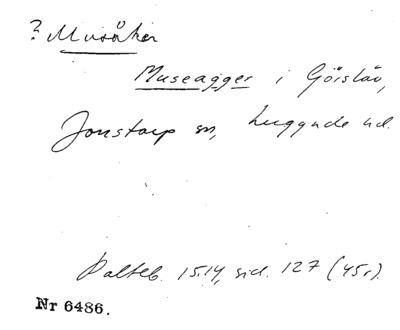 ? Musåker
Museagger i Görslöv,
Jonstorp sn, Luggude hd.
Palteb. 1514, sid. 127 (45r).
Nr 6486.